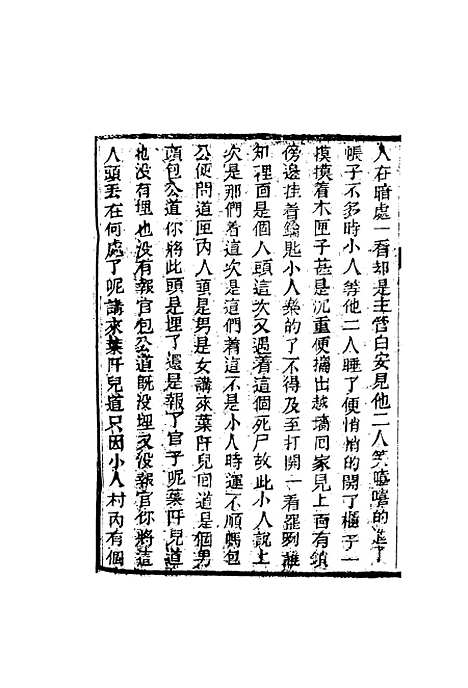 人在暗處一看却是主管白安見他二人笑嘻嘻的進了
帳子不多時小人等他二人睡了便悄悄的開了櫃子一
摸摸着木匣子甚是沉重便攜出越墻回家見上面有鎖
傍邊挂着鑰匙小人樂的了不得及至打開一看罷咧誰
知裡面是個人頭這次又遇着這個死尸故此小人說上
次是那們着這次是這們着這不是小人時運不順嗎包
公便問道匣內人頭是男是女講來葉阡兒回道是個男
頭包公道你將此頭是埋了還是報了官了呢葉阡兒道
也没有埋也没有報官包公道旣没埋又没報官你將這
人頭丟在何處了呢講來葉阡兒道只因小人村內有個